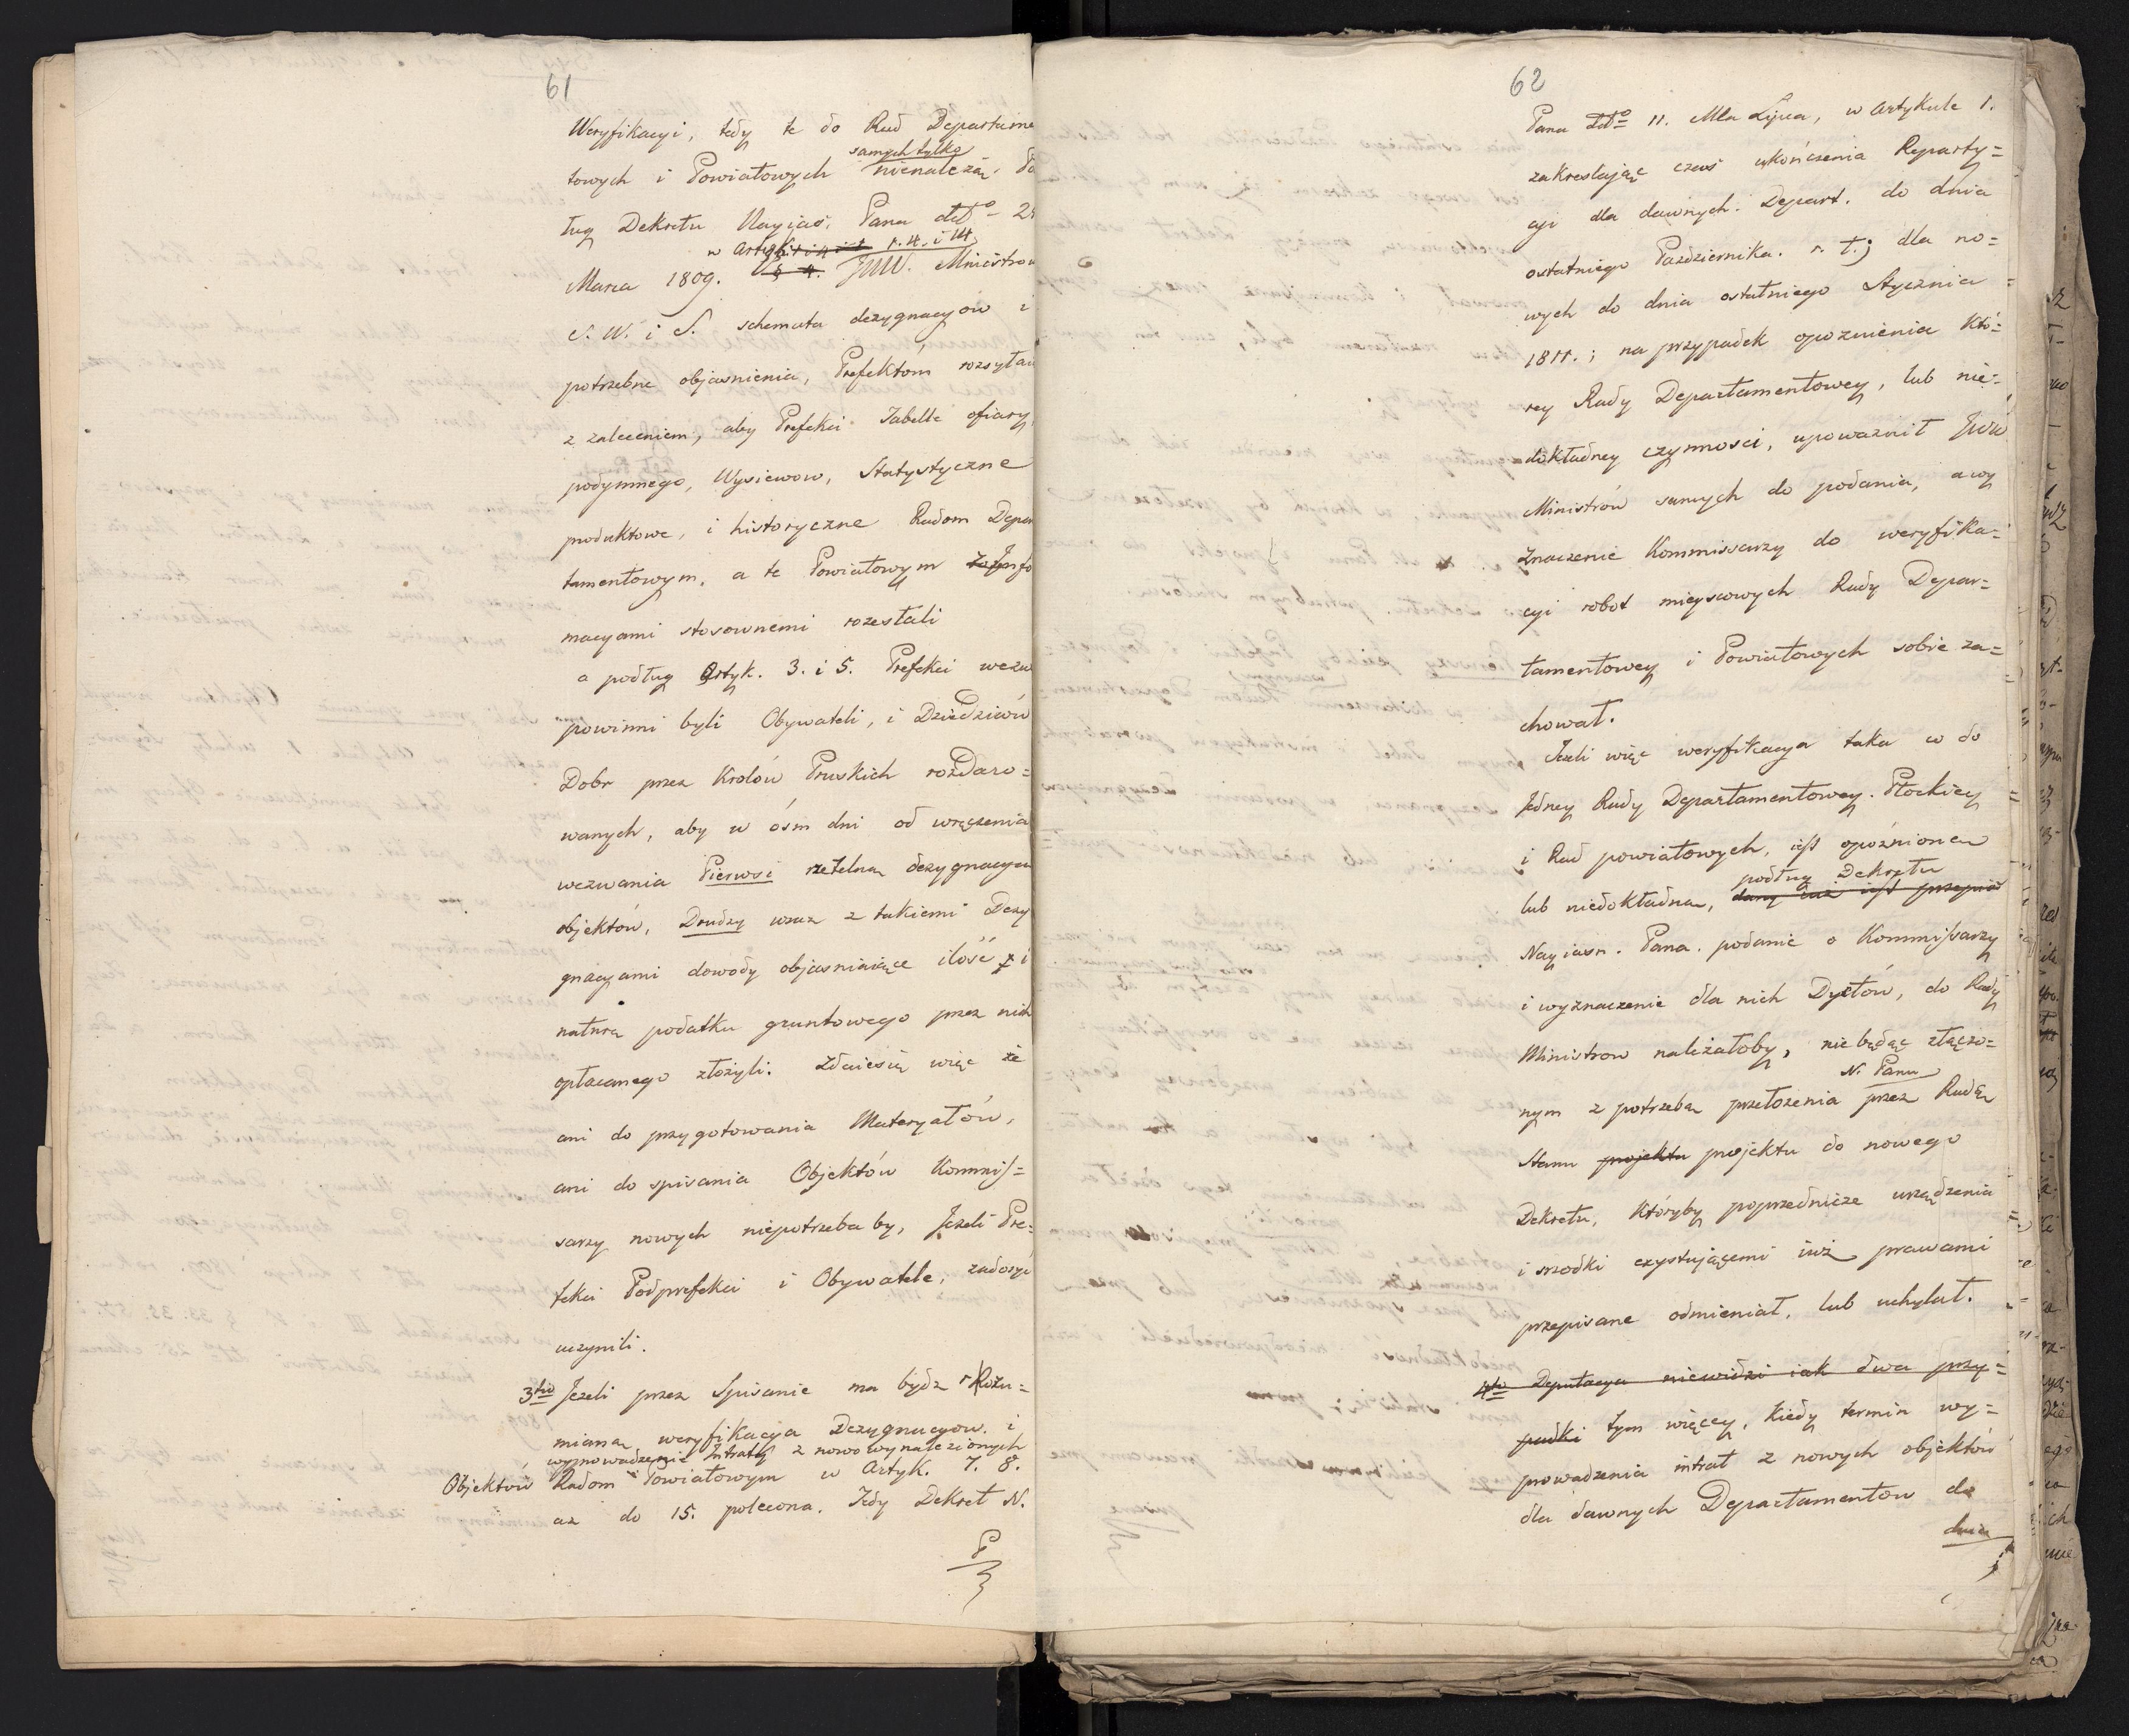 61
Weryfikacyi, tedy te do Rad Departame
samych tylko
towych i Powiatowych nienależą. Po
ług Dekretu Nayjaś. Pana dtto
w Artyk. 1. 4. i 14.
Marca 1809. JWW. Ministrow
S. W. i S. schemata dezygnacyow i
potrzebne objasnienia, Prefektóm rozsyłaią
z zaleceniem, aby Prefekci Tabelle ofiary,
podymnego, Wysiewow, Statystyczne
produktowe, i historyczne Radom Depar
tamentowym, a te Powiatowym z Info
macyami stosownemi rozesłali
a podług Artyk. 3. i 5. Prefekci wezw
powinni byli Obywateli, i Dziedziców
Dobr przez Królów Pruskich rozdaro=
wanych, aby w ośm dni od wręczenia
wezwania Pierwsi rzetelną dezygnacyą
objektów, Drudzy wraz z takiemi Dezy
gnacyami dowody objasniaiące ilość i
naturę podatku gruntowego przez nich
opłacanego złożyli. Zdaiesię więc że
ani do przygotowania Materyałów,
ani do spisania Objektów Kommis=
sarzy nowych niepotrzeba by, Jeżeli Pre=
fekci Podprefekci i Obywatele, zadosyć
uczynili.
3tio Jeżeli przez Spisanie ma bydz rozu=
miana weryfikacya Dezygnacyow. i
wyprowadzenie Intraty z nowo wynalezionych
Objektów Radom Powiatowym w Artyk. 7. 8.
aż do 15. polecona. Tedy Dekret N.
P
62
Pana dtto 11. Mca Lipca, w Artykule 1.
zakreslając czas ukończenia Reparty=
cyi dla dawnych. Depart. do dnia
ostatniego Pazdziernika. r. t.; dla no=
wych do dnia ostatniego Stycznia
1811.; na przypadek opoznienia któ=
rey Rady Departamentowey, lub nie=
dokładney czynnosci, upoważnił JWW
Ministrów samych do podania, a wy
znaczenie Kommissarzy do weryfika=
cyi robot mieyscowych Rady Depar=
tamentowey i Powiatowych sobie za=
chował.
Jeżeli więc weryfikacya taka co do
Jedney Rady Departamentowey. Płockiey
i Rad powiatowych, iest opoźniona
podług Dekretu
lub niedokładna, dany iuż iest przepis
Nayiasn. Pana. podanie o Kommissarzy
i wyznaczenie dla nich Dyetów, do Rady
Ministrow należałoby, nie będąc złączo=
N. Panu
nym z potrzebą przełożenia przez Radę
Stanu projektu projektu do nowego
Dekretu, któryby poprzednicze urządzenia
i srzodki exystującemi iuż prawami
przepisane odmieniał, lub uchylał.
4to Deputacya niewidzi iak dwa przy=
padki tym więcey, kiedy termin wy=
prowadzenia intrat z nowych objektów
dla dawnych Departamentow do
dnia